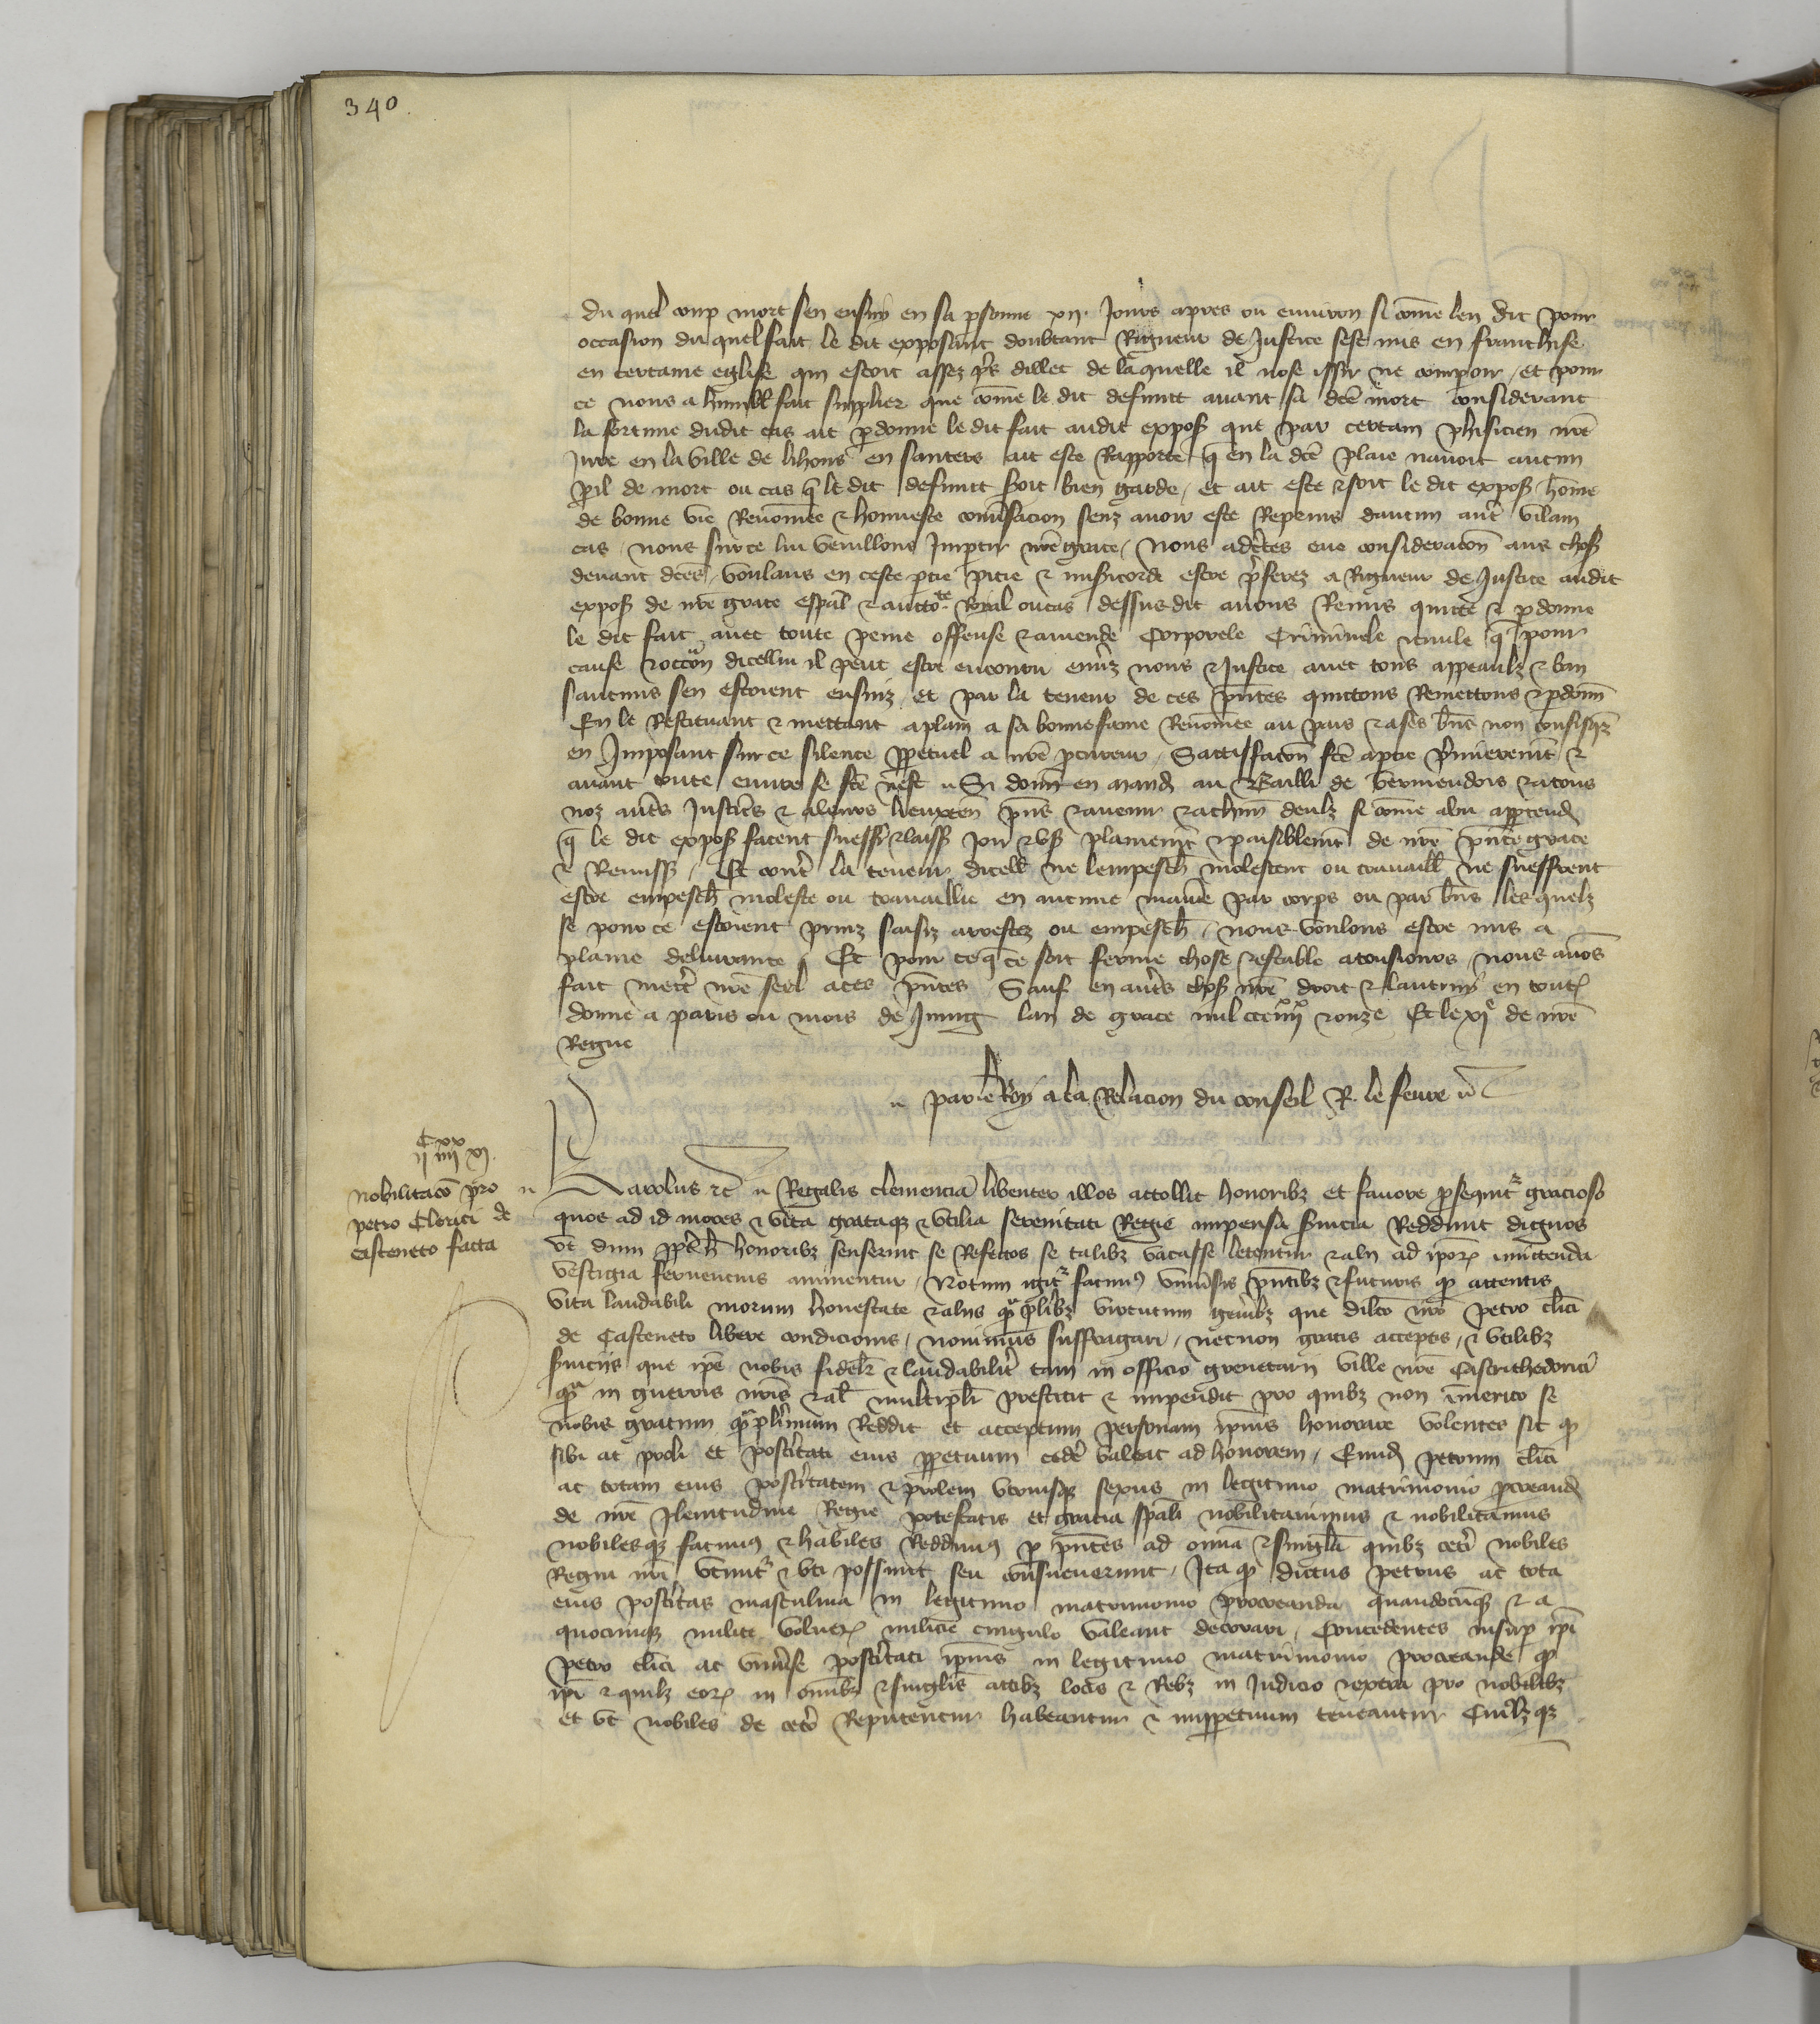 340
du quel coup mort sen ensuy en sa personne xv. Jours apres ou environ si come len dit pour
occasion du quel fait le dit exposant doubtant Rigueur de Justice sest mis en franchise
en certaine eglise qui estoit assez prs dillec de laquelle il nose issir ne comparoir / et pour
ce nous a humbl fait supplier que come le dit defunct avant sa dce mort considerant
la fortune dudit cas ait pdonne le dit fait audit expos que par certain phisicien nre
Jure en la ville de lihons en santers ait este Rapporte q en la dce plaie navoit aucun
pil de mort ou cas q le dit defunct seroit bien garde / et ait este & soit le dit expos home
de bonne vie Renomee & honneste conversacion senz avoir este Reprins daucun autre vilain
cas / nous sur ce lui veuillons Impartir nre grace / Nous adcertes eue consideracon aus chos
devant dces / voulans en ceste ptie pitie & misericorde estre preferez a Rigueur de Justice audit
expos de nre grace espal & auctote Royal ou cas dessusdit avons Remis quicte & pdonne
le dit fait avec toute peine offense & amende Corporele Criminele & civile q pour
cause & occon dicellui il peut estre encouru envers nous & Justice avec tous appeaulz & ban
saucuns sen estoient ensuiz et par la teneur de ces pntes quictons Remettons & pdonn
En le Restituant & mettant a plain a sa bonne fame Renomee au pais & a ses bns non confisqz
en Imposant sur ce silence ppetuel a nre pcureur / Satisfacon fce aptie premierement &
avant toute euvre se fce nest Si donn en mand au Bailli de Vermendois & a tous
noz autres Justiciers & a leurs lieuxten pns & avenir & a chun deulz si come a lui apptend
q le dit expos facent sueffr & laiss Joir & us plainement & paisiblement de nre pnte grace
& Remiss / Et contre la teneur dicell ne lempesch molestent ou travaill ne sueffrent
estre empesch moleste ou travaillie en aucune maniere par corps ou par bns les quelz
se pour ce estoient prinz saisiz arrestez ou empesch / nous voulons estre mis a
plaine delivrance / Et pour ce q ce soit ferme chose & estable a tousiours / nous avons
fait mectre nre seel a ces pntes Sauf en autres chos nre droit & lautruy en tout
donne a paris ou mois de Juing lan de grace mil ccc iiiixx & onze Et le xie de nre
Regne
par le Roy a la Relacion du conseil R. le fevre
C xx
ij iiij xj.
Nobilitaco pro
petro Clerici de
Casteneto facta
Karolus &c Regalis clemencia libenter illos attollit honoribz et favore prosequitr gracioso
quos ad id mores & vita grataqz & utilia serenitati Regie impensa servicia Reddunt dignos
ut dum honoribz senserint se Refectos se talibz vacasse letentur & alii ad ipor imitenda
vestigia fervencius animentur / Notum igitr facimus universis pntibz & futuris qd attentis
vita laudabili morum honestate & aliis quampluribz virtutum generibz que dilco nro Petro clici
de Casteneto libere condicionis / novimus suffragari / necnon gratis acceptis / & utilibz
serviciis que ipe nobis fidelr & laudabilir tam in officio grenetarii ville nre Castritheodorici
qm in guerris nris & al multiplr prestitit & impendit pro quibz non immerito se
nobis gratum quamplurimum Reddit et acceptum personam ipius honorare volentes sic qd
sibi ac proli et posteritati eius ppetuum cedere valeat ad honorem / Eund petrum clici
ac totam eius posteritatem & prolem utriusqz sexus in legitimo matrimonio procreand
de nre plenitudine Regie potestatis et gracia spali nobilitavimus & nobilitamus
nobilesqz facimus & habiles Reddimus p pntes ad omia & singula quibz ceteri nobiles
Regni nri utuntr & uti possunt seu consueverunt / Ita qd dictus petrus ac tota
eius posteritas masculina in legitimo matrimonio procreanda quandocumqz & a
quocumqz milite voluer milicie cingulo valeant decorari / Concedentes insup ipi
Petro clici ac universe posteritati ipius in legitimo matrimonio procreande qd
ipi & quilz eor in omibz & singulis actibz locis & Rebz in Judicio & extra pro nobilibz
et ut nobiles de cetero Reputentur habeantur & imppetuum teneantur Cuilz qz